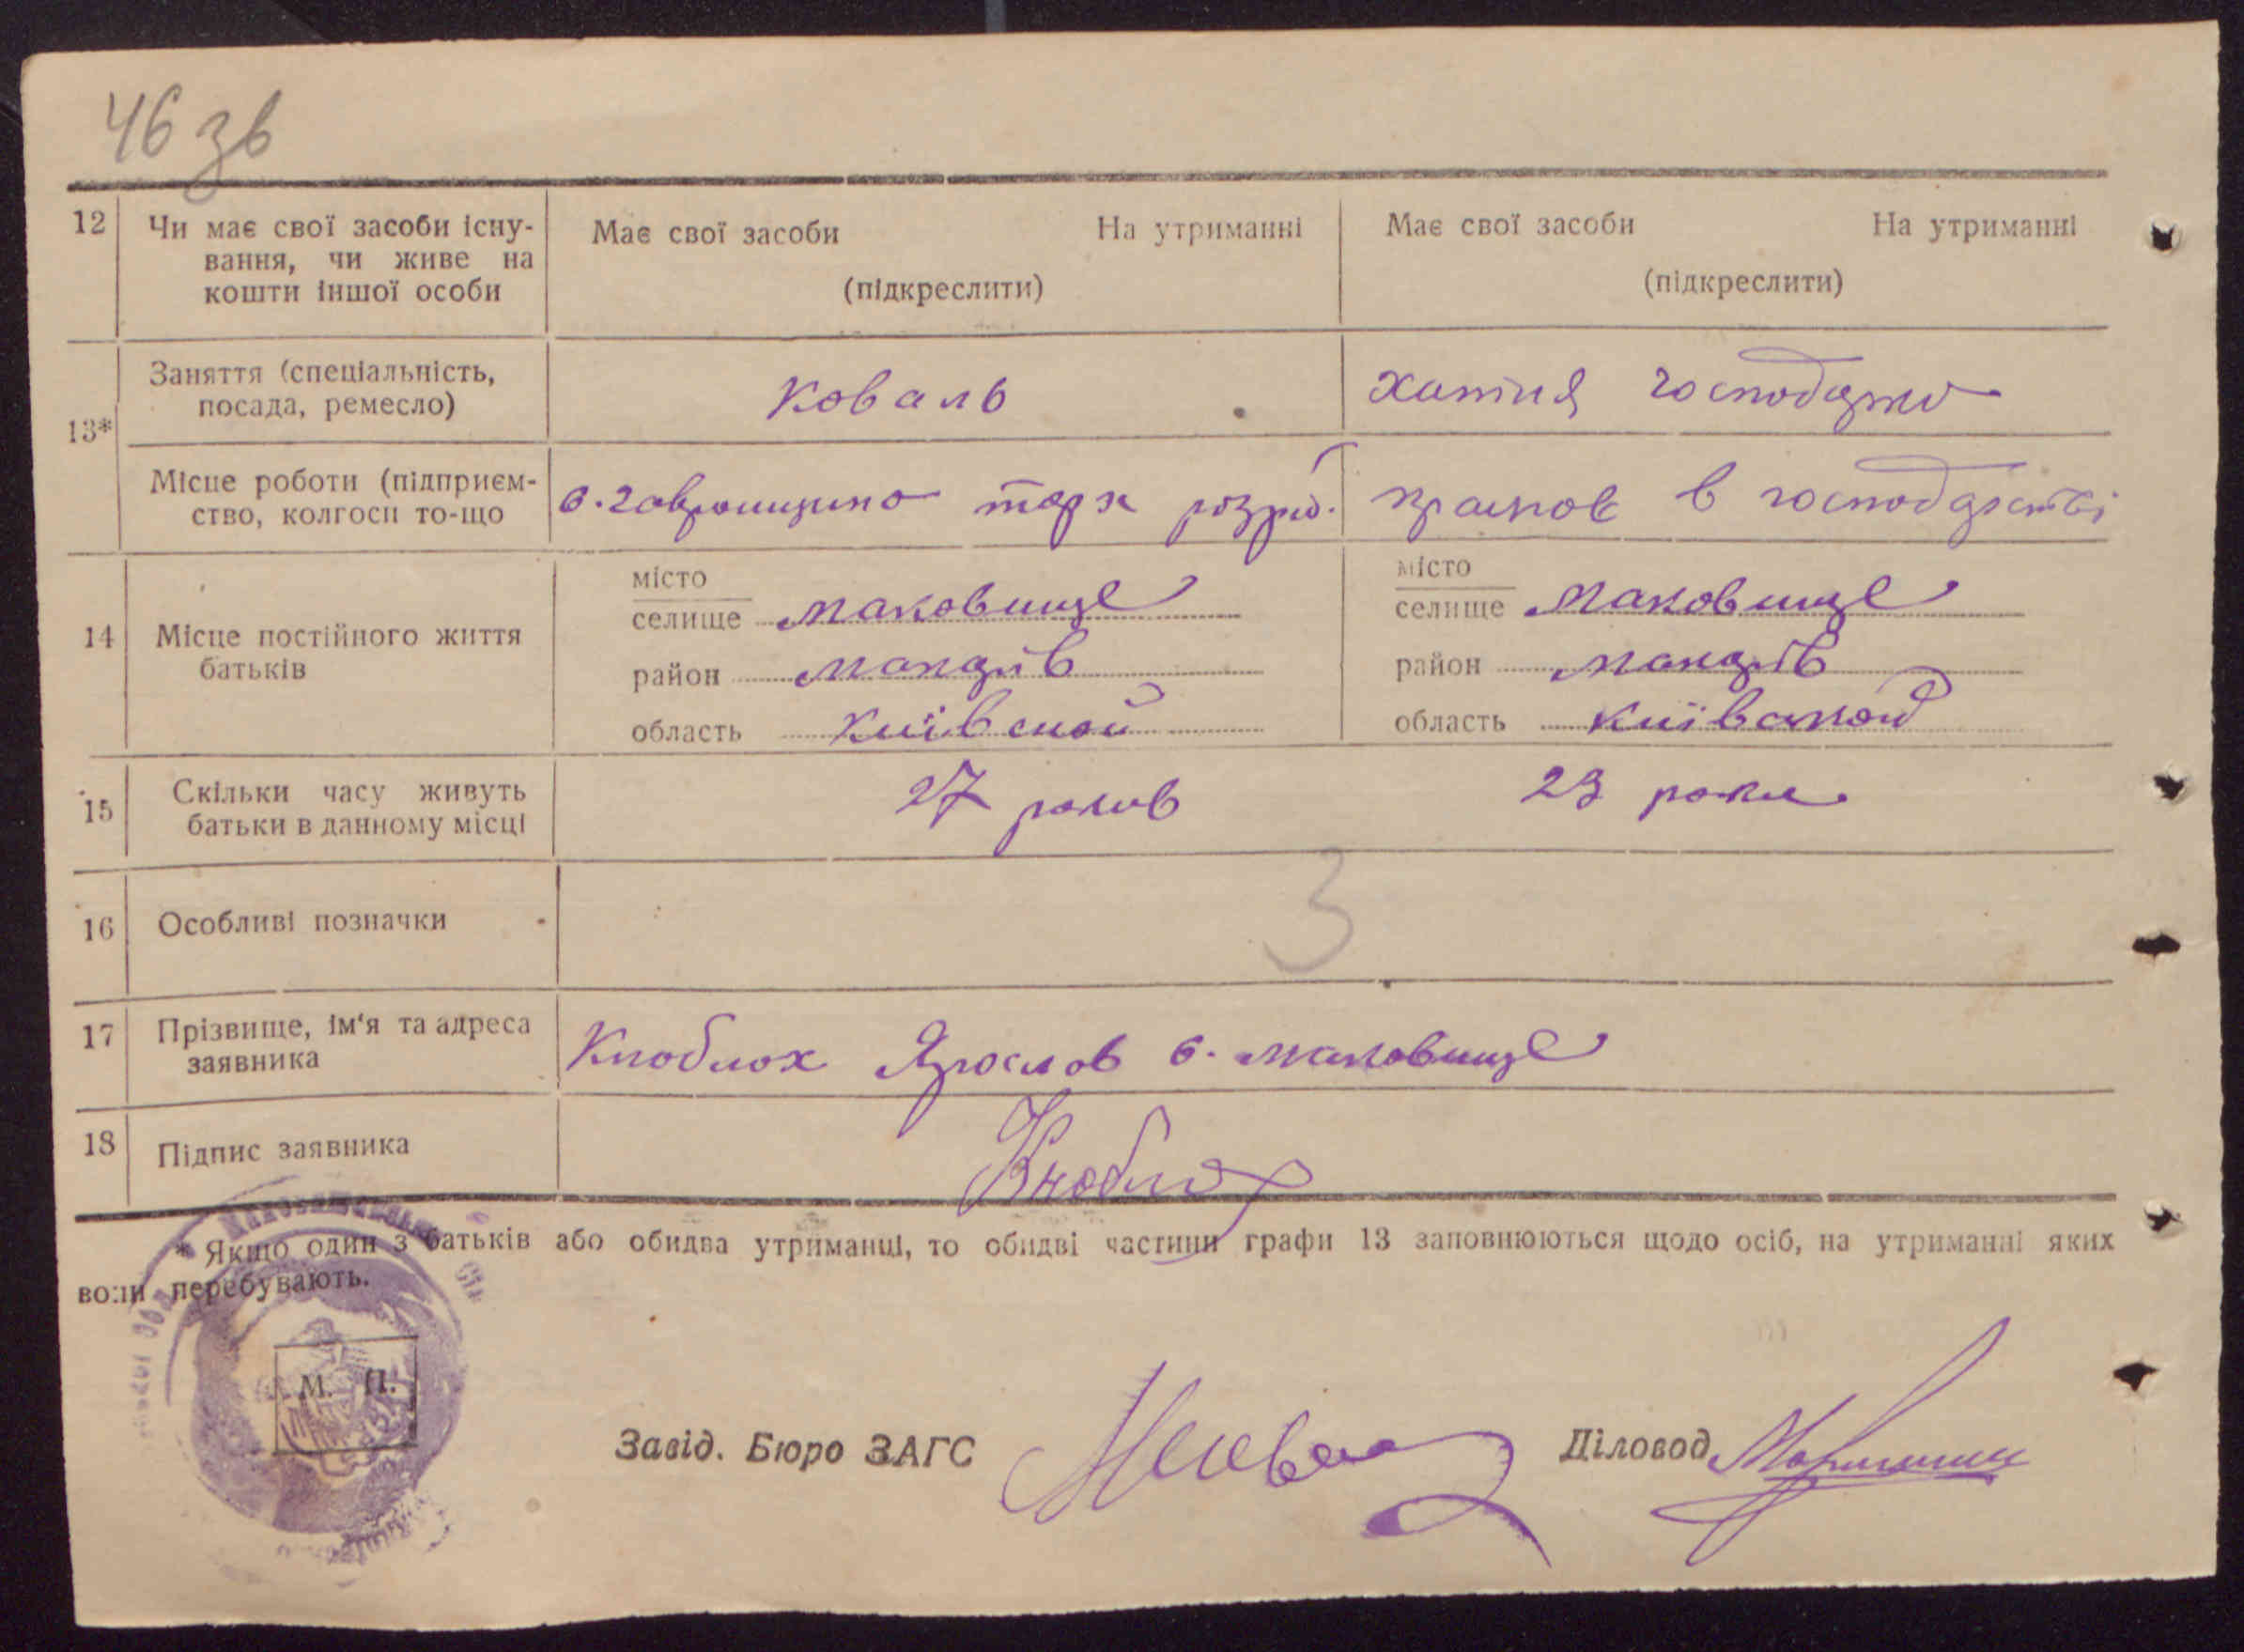 46 зв
12 Чи має свої засоби існу- Має свої засоби На утриманні Має свої засоби На утриманні
вання, чи живе на
кошти іншої особи (підкреслити) (підкреслити)
13* Заняття (спеціальність, коваль хатня господарка
посада, ремесло)
Місце роботи (підприєм- с. Гавронщина працює в господарстві
ство, колгосп то-що
14 Місце постійного життя
батьків
місто місто
селище маковище селище маковище
район макарів район макарів
область київской область київской
15 Скільки часу живуть 27 років 23 роки
батьки в данному місці
16 Особливі позначки 3
17 Прізвище, ім'я та адреса Кноблох Ярослов с. маковище
заявника
18 Підпис заявника Кноблох
* Якщо один з батьків або обидва утриманці, то обидві частини графи 13 заповнюються щодо осіб, на утриманні яких
вони перебувають.
М. П.
Завід. Бюро ЗАГС Діловод